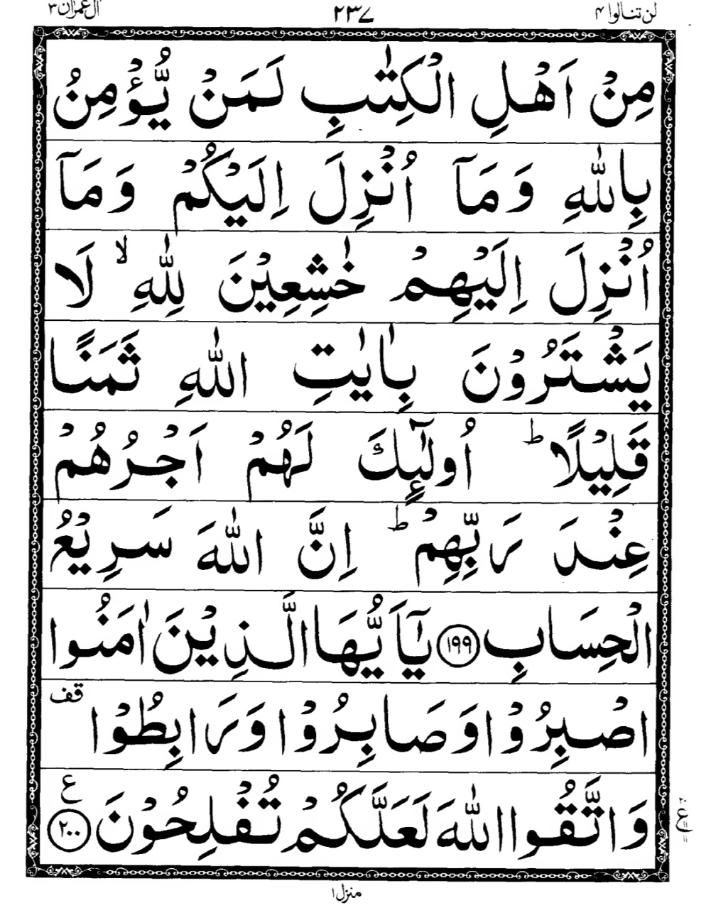 لن تنالوا ۴ ۲۳۷ اٰل عمرٰن ۳
مِنْ اَهْلِ الْكِتٰبِ لَمَنْ يُّؤْمِنُ
بِاللّٰهِ وَمَآ اُنْزِلَ اِلَيْكُمْ وَمَآ
اُنْزِلَ اِلَيْهِمْ خٰشِعِيْنَ لِلّٰهِ ۙ لَا
يَشْتَرُوْنَ بِاٰيٰتِ اللّٰهِ ثَمَنًا
قَلِيْلًا ؕ اُولٰٓئِكَ لَهُمْ اَجْرُهُمْ
عِنْدَ رَبِّهِمْ ؕ اِنَّ اللّٰهَ سَرِيْعُ
الْحِسَابِ ﴿۱۹۹﴾ يٰٓاَيُّهَا الَّذِيْنَ اٰمَنُوا
اصْبِرُوْا وَصَابِرُوْا وَرَابِطُوْا قف
وَاتَّقُوا اللّٰهَ لَعَلَّكُمْ تُفْلِحُوْنَ ﴿۲۰۰﴾ ع
منزل ۱